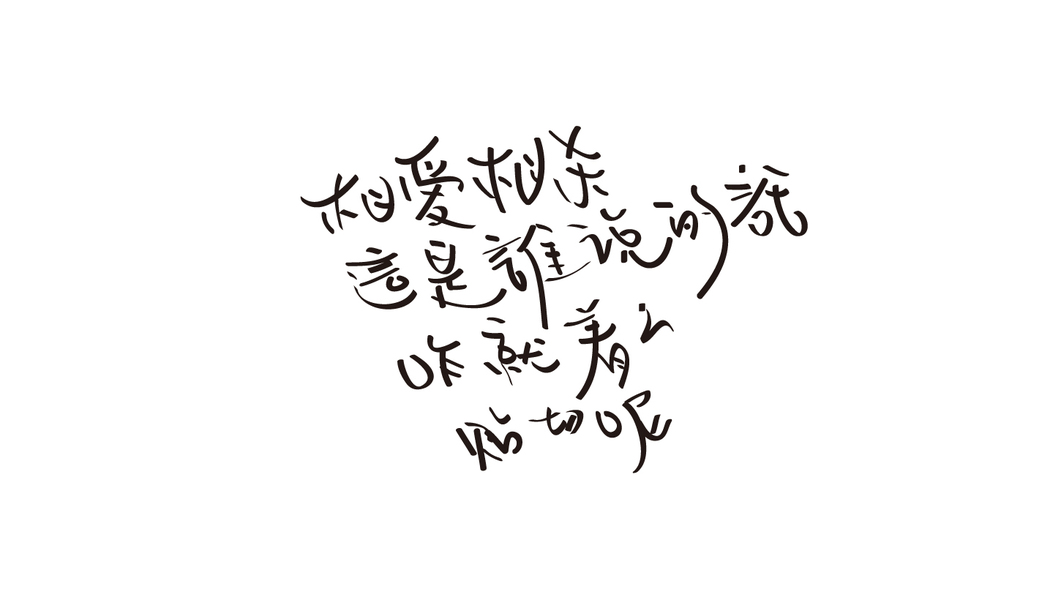 相爱相杀
這是誰说的話
咋就着么
贴切呢